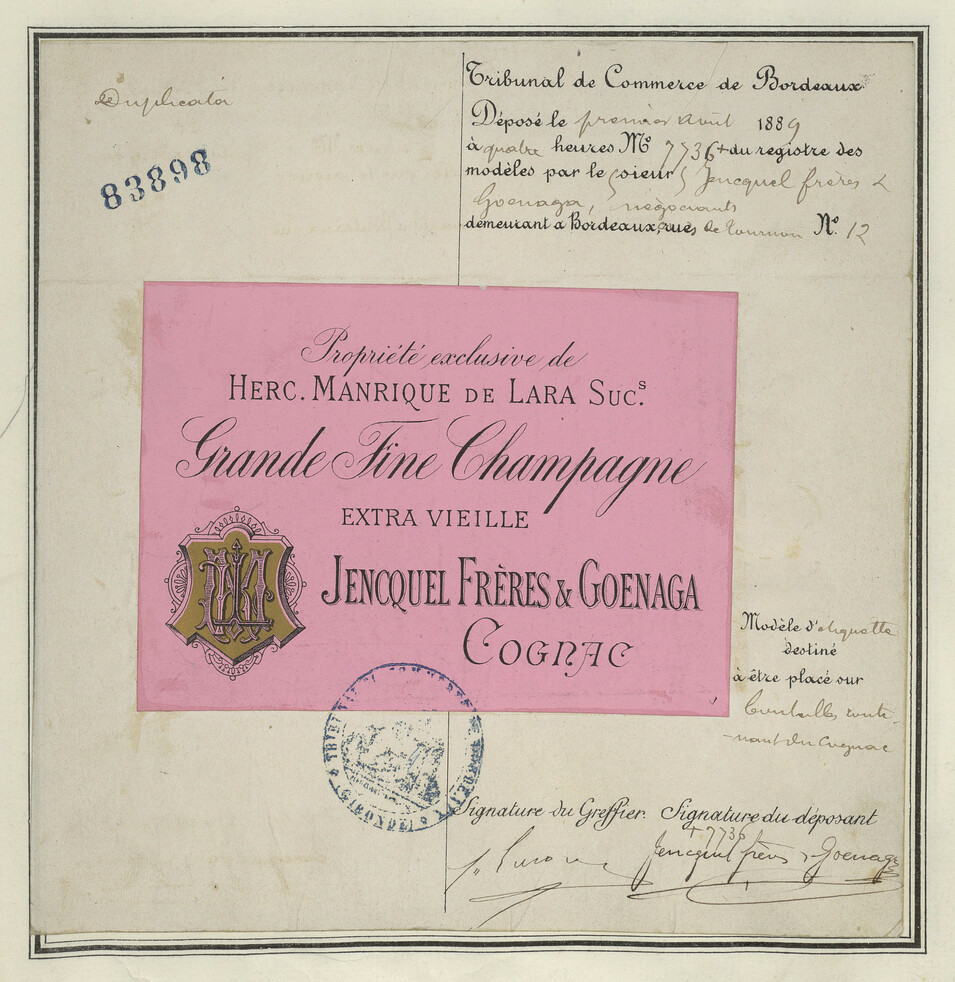 Duplicata
83898
Tribunal de Commerce de Bordeaux
Déposé le premier Août 1889
à quatre heures Nº 7736 + du registre des
modèles par le sieur s Jencquel frères &
Goenaga, négociants
demeurant à Bordeaux, rue de Tournon Nº. 12
Propriété exclusive de
HERC. MANRIQUE DE LARA SUC.s
Grande Fine Champagne
EXTRA VIEILLE
JENCQUEL FRÈRES & GOENAGA
COGNAC
Modèle d'étiquette
destiné
à être placé sur
bouteilles conte-
-nant du Cognac
TRIBUNAL DE COMMERCE DE BORDEAUX
(GIRONDE)
Signature du Greffier. Signature du déposant
+ 7736
Jencquel frères & Goenaga